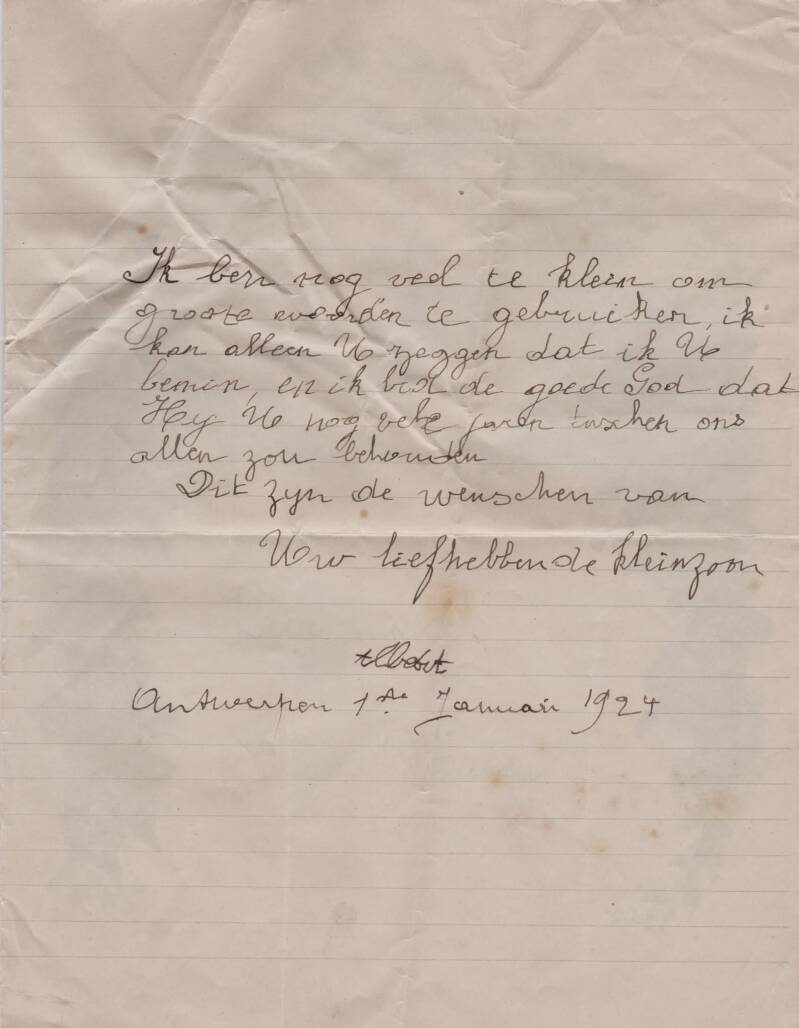 Ik ben nog veel te klein om
groote woorden te gebruiken, ik
kan alleen U zeggen dat ik U
bemin, en ik bid de goede God dat
Hy U nog vele jaren tusschen ons
allen zou behouden
Dit zyn de wenschen van
Uw liefhebbende kleinzoon
Albert
Antwerpen 1ste Januari 1924